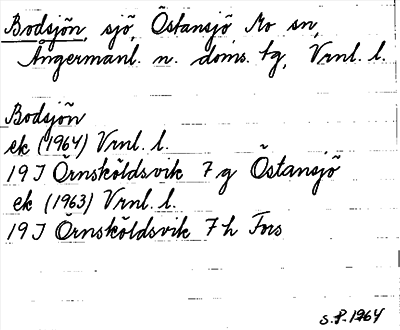 Bodsjön, sjö, Östansjö Mo sn,
Ångermanl. n. doms. tg, Vrnl. l.
Bodsjön
ek (1964) Vrnl. l.
19 J Örnsköldsvik 7 g Östansjö
ek (1963) Vrnl. l.
19 J Örnsköldsvik 7 h Fors
S.P. 1964